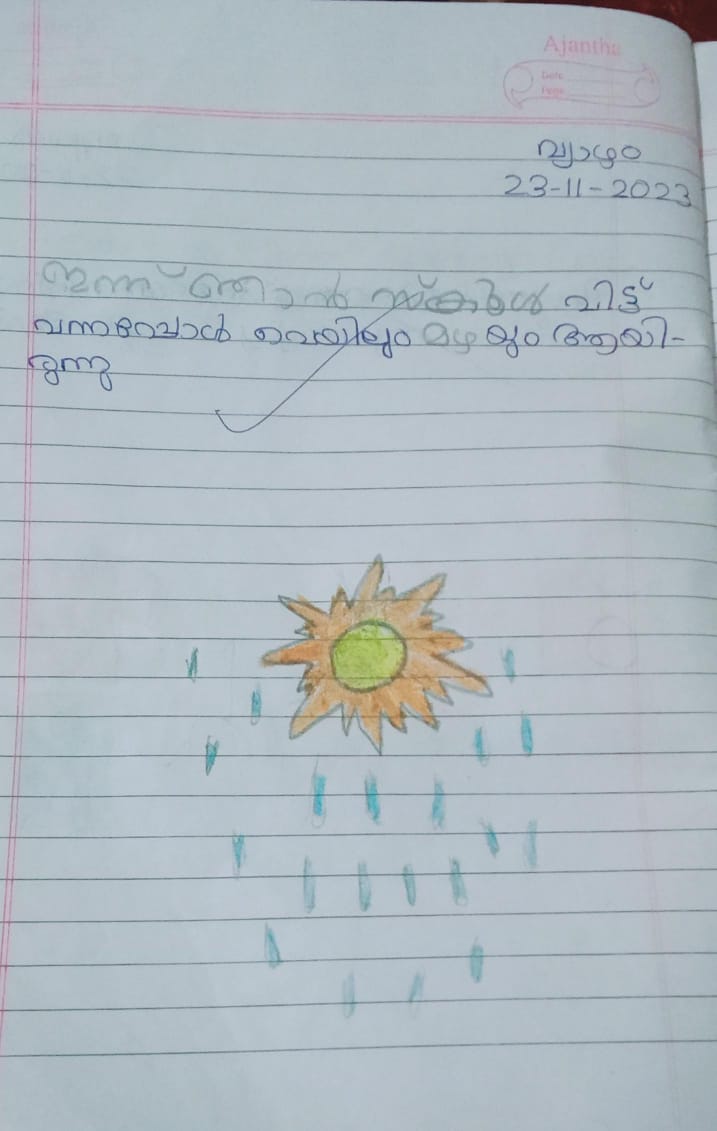 Ajantha
Date
Page
വ്യാഴം
23-11-2023
ഇന്ന് ഞാൻ സ്കൂൾ വിട്ട്
വന്നപ്പോൾ വെയിലും മഴയും ആയി-
രുന്നു